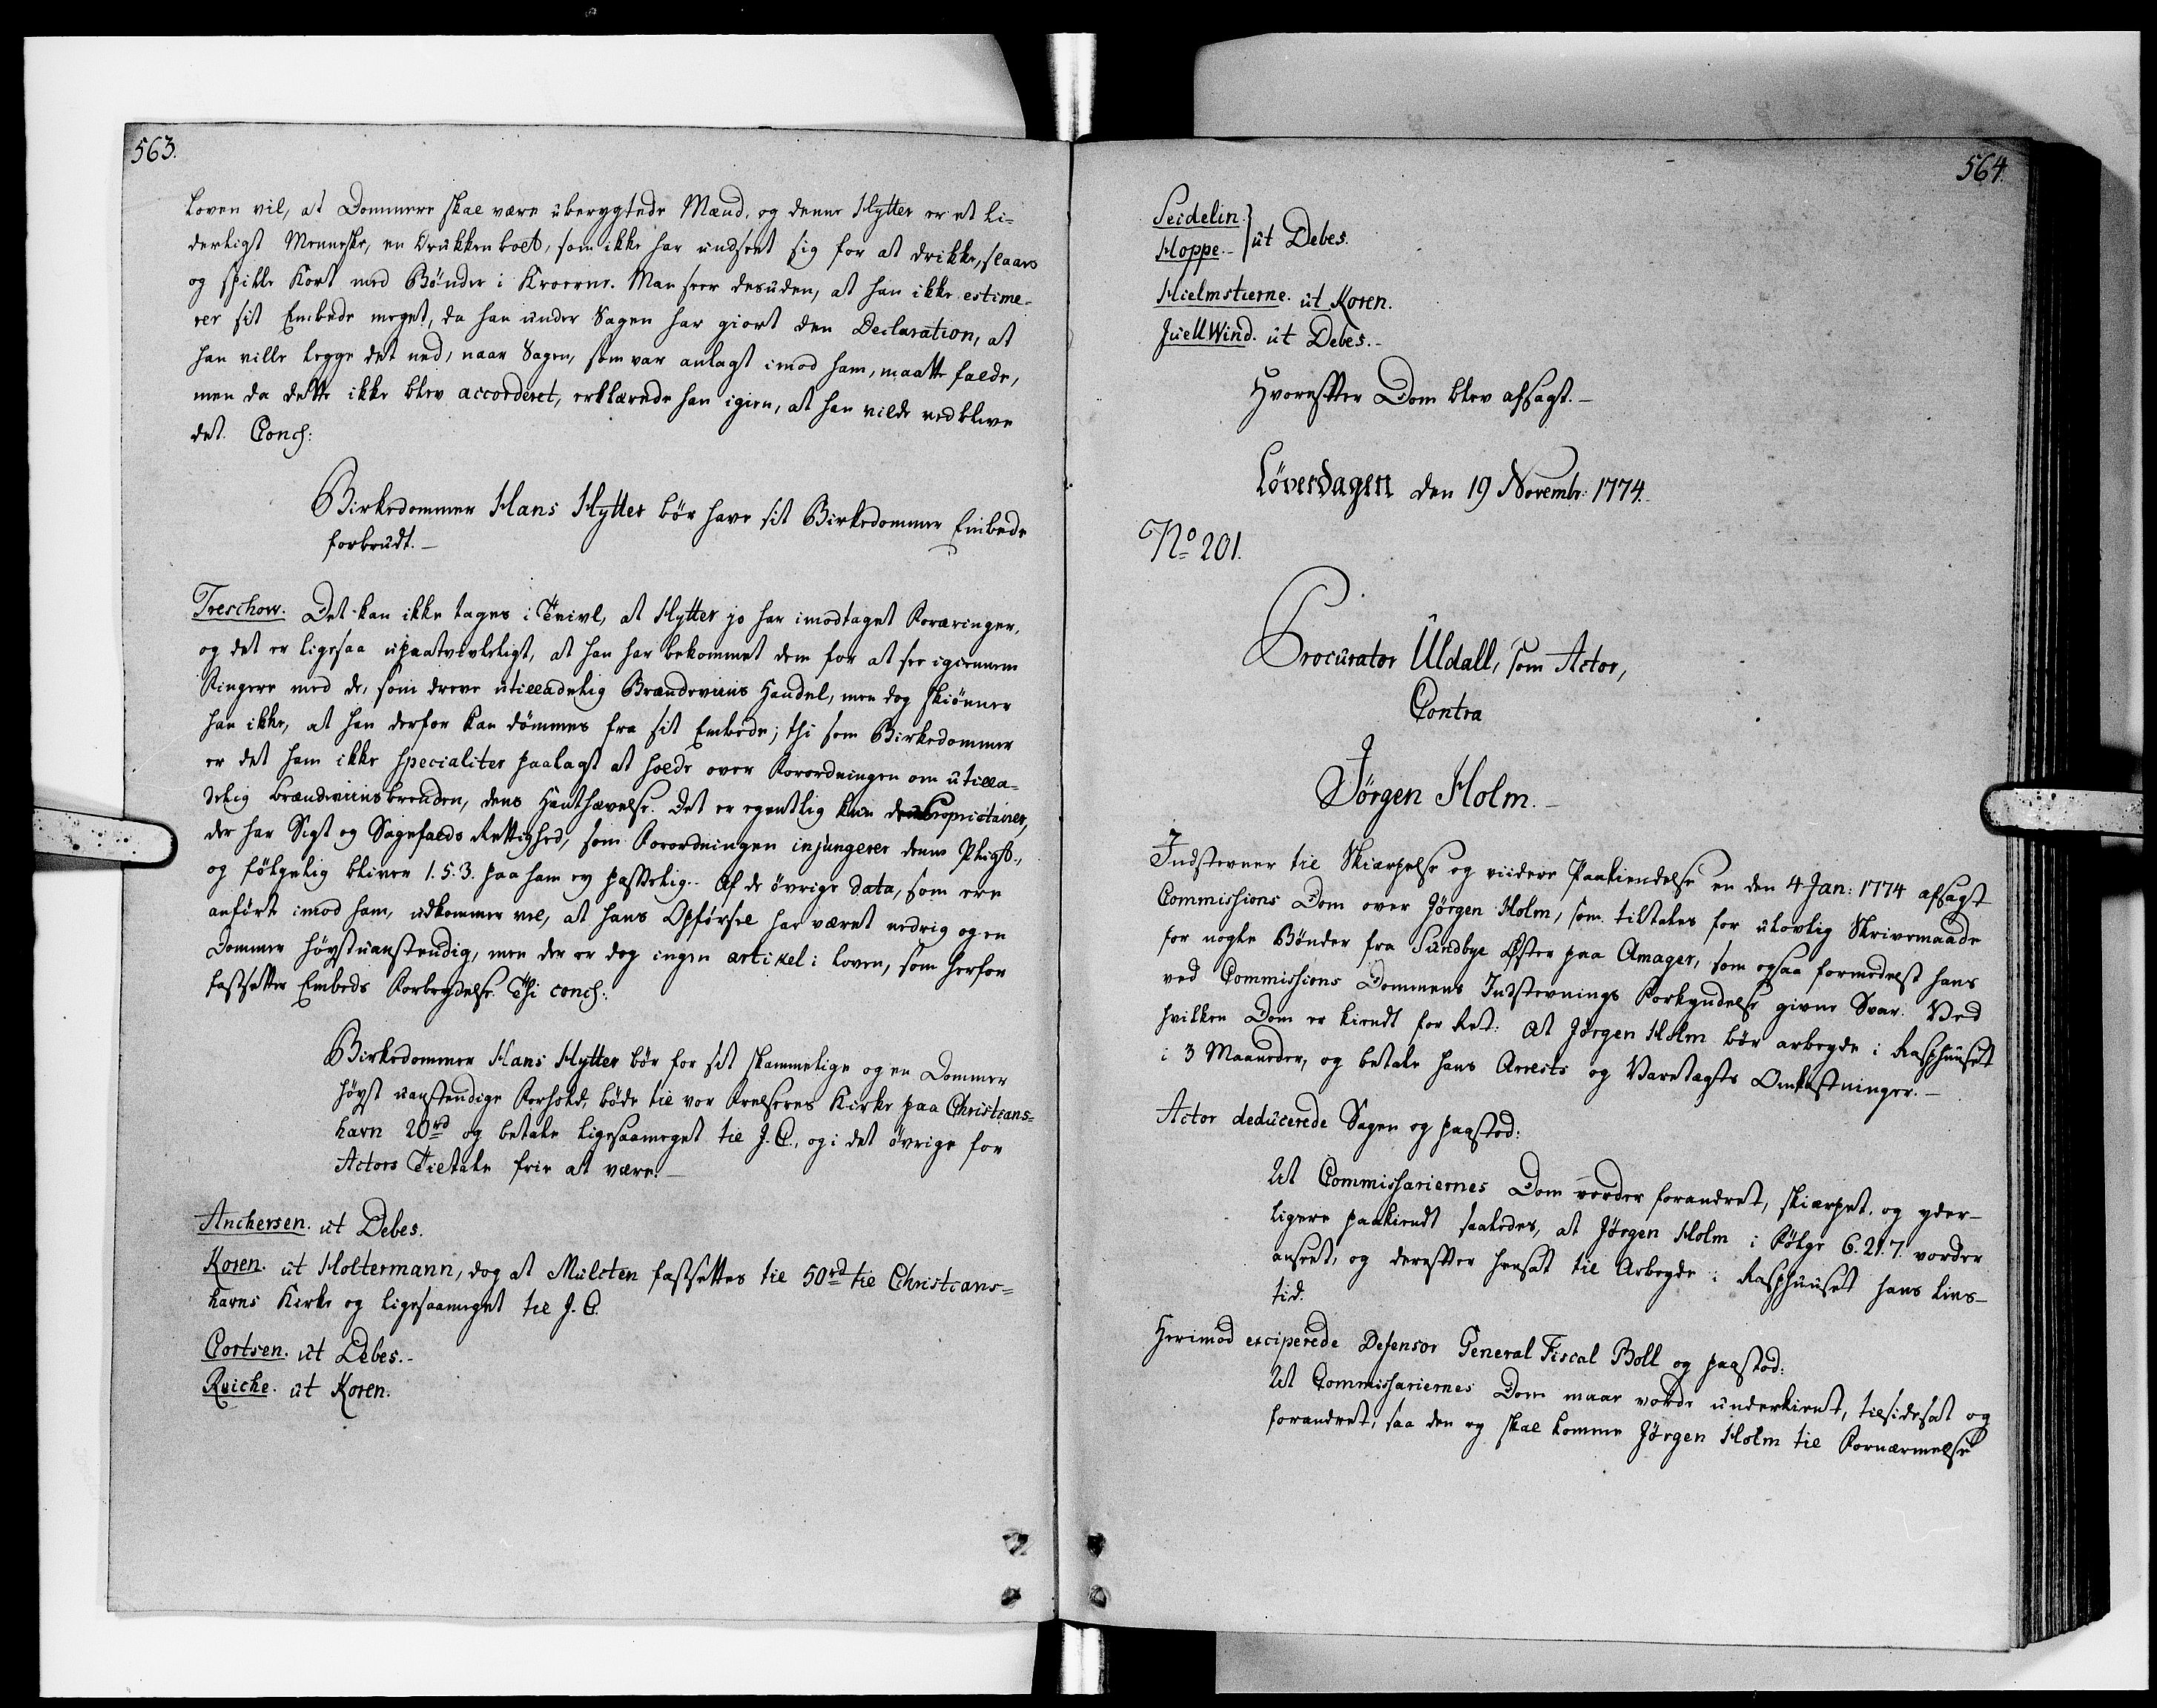 563.
Loven vil, at Dommere skal være uberygtede Mænd, og denne Hytter er et li-
derligt Menneske, en Drukkenbolt, som ikke har undseet sig for at drikke, slaaes
og spille Kort med Bönder i Kroerne. Man seer desuden, at han ikke estime-
rer sit Embede meget, da han under Sagen har giort den Declaration, at
han ville legge det ned, naar Sagen, som var anlagt imod ham, maatte falde,
men da dette ikke blev accorderet, erklærede han igien, at han vilde vedblive
det. Concl:
Birkedommer Hans Hytter bör have sit Birkedommer Embede
forbrudt.-
Treschow. Det kan ikke tages i Tvivl, at Hytter jo har imodtaget Foræringer,
og det er ligesaa upaatvivleligt, at han har bekommet dem for at see igiennem
Fingere med de, som dreve utilladelig Brændeviins Handel, men dog skiönner
han ikke, at han derfor kan dömmes fra sit Embede; thi som Birkedommer
er det ham ikke specialiter paalagt at holde over Forordningen om utilla-
delig brændeviinsbrenden, dens Hanthævelse. Det er egentlig kun Proprietairer,
der har Sigt og Sagefalds Rettighed, som Forordningen injungerer denne Pligt,
og fölgelig bliver 1.5.3. paa ham ey passelig.- Af de övrige data, som ere
anfört imod ham, udkommer vel, at hans Opförsel har været nedrig og en
Dommer höystuanstendig, men der er dog ingen artikel i Loven, som herfor
fastsetter Embeds Forbrydelse. Thi concl:
Birkedommer Hans Hytter bör for sit skammelige og en Dommer
höyst uanstendige Forhold, böde til vor Frelseres Kirke paa Christians-
havn 20 rd og betale ligesaameget til J. C., og i det övrige for
Actors Tiltale frie at være.-
Anchersen. ut Debes.
Koren. ut Holtermann, dog at Mulcten fastsettes til 50 rd til Christians-
havns Kirke og ligesaameget til J. C.
Cortsen. ut Debes.-
Reiche. ut Koren.
564.
Seidelin.
Hoppe.- } ut Debes.
Hielmstierne. ut Koren.
Juell Wind. ut Debes.-
Hvorefter Dom blev afsagt.-
Löverdagen den 19 Novembr: 1774.
No 201.
Procurator Uldall, som Actor,
Contra
Jörgen Holm.-
Indstevner til Skiærpelse og viidere Paakiendelse en den 4 Jan: 1774 afsagt
Commissions Dom over Jörgen Holm, som tiltales for ulovlig Skrivemaade
for nogle Bönder fra Sundbye Öster paa Amager, som ogsaa formedelst hans
ved Commissions Dommens Indstevnings Forkyndelse givne Svar. Ved
hvilken Dom er kiendt for Ret: At Jörgen Holm bör arbeyde i Rasphuuset
i 3 Maaneder, og betale hans Arrests og Varetægts Omkostninger.-
Actor deducerede Sagen og paastod:
At Commissariernes Dom vorder forandret, skiærpet, og yder-
ligere paakiendt saaledes, at Jörgen Holm i Fölge 6.21.7. vorder
anseet, og derefter hensat til Arbeyde i Rasphuuset hans Livs-
tid.
Herimod exciperede Defensor General Fiscal Boll og paastod:
At Commissariernes Dom maae vorde underkient, tilsidesat og
forandret, saa den ey skal komme Jörgen Holm til Fornærmelse